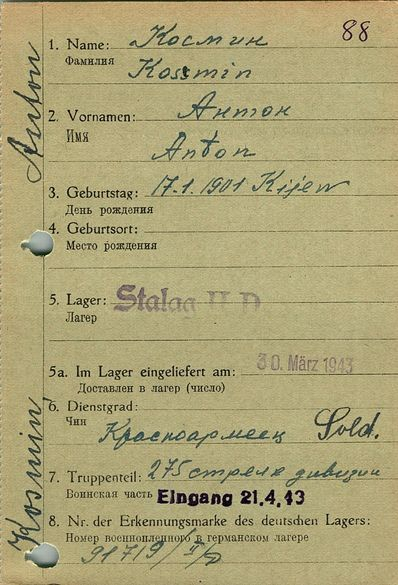 88
Anton
Kosmin
1. Name: Космин
Фамилия
Kossmin
2. Vornamen: Антон
Имя
Anton
3. Geburtstag: 17.1.1901 Kijew
День рождения
4. Geburtsort:
Место рождения
5. Lager: Stalag II D
Лагер
5a. Im Lager eingeliefert am: 30. März 1943
Доставлен в лагер (число)
6. Dienstgrad:
Чин
Красноармеец Sold.
7. Truppenteil: 275 стрелк дивизии
Воинская часть Eingang 21.4.43
8. Nr. der Erkennungsmarke des deutschen Lagers:
Номер военнопленного в германском лагере
91719/II/D